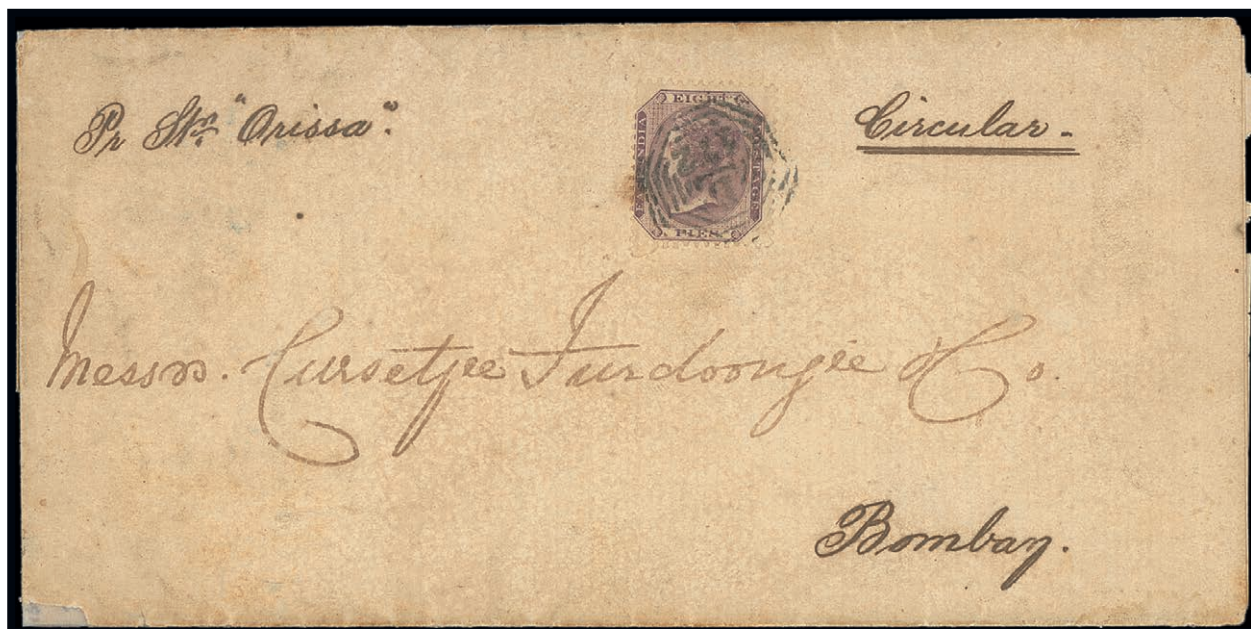 Pr Stmr "Orissa".
Circular.
EIGHT
EAST INDIA
POSTAGE
PIES
Messrs. Cursetjee Furdoongie & Co.
Bombay.